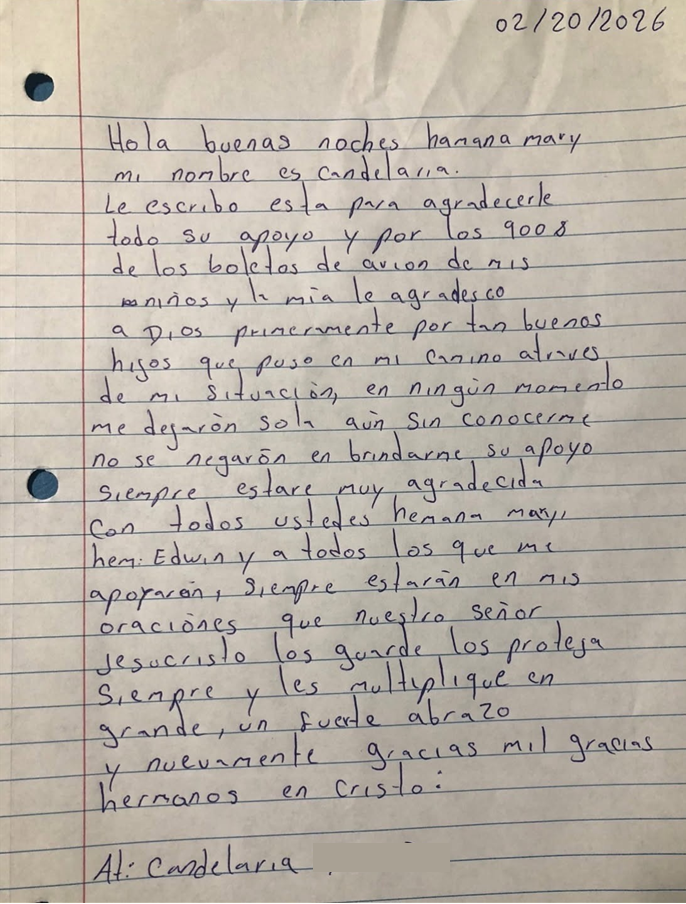 02/20/2026
Hola buenas noches hamana mary
mi nombre es Candelaria.
Le escribo esta para agradecerle
todo su apoyo y por los 900$
de los boletos de avion de mis
niños y la mia le agradesco
a Dios primeramente por tan buenos
hijos que puso en mi camino atraves
de mi situación, en ningún momento
me degarón sola aún sin conocerme
no se negarón en brindarme su apoyo
siempre estare muy agradecida
con todos ustedes hemana mary,
hem: Edwin y a todos los que me
apoyarón, siempre estarán en mis
oraciónes que nuestro señor
Jesucristo los guarde los proteja
siempre y les multiplique en
grande, un fuerte abrazo
y nuevamente gracias mil gracias
hermanos en cristo:
At: Candelaria